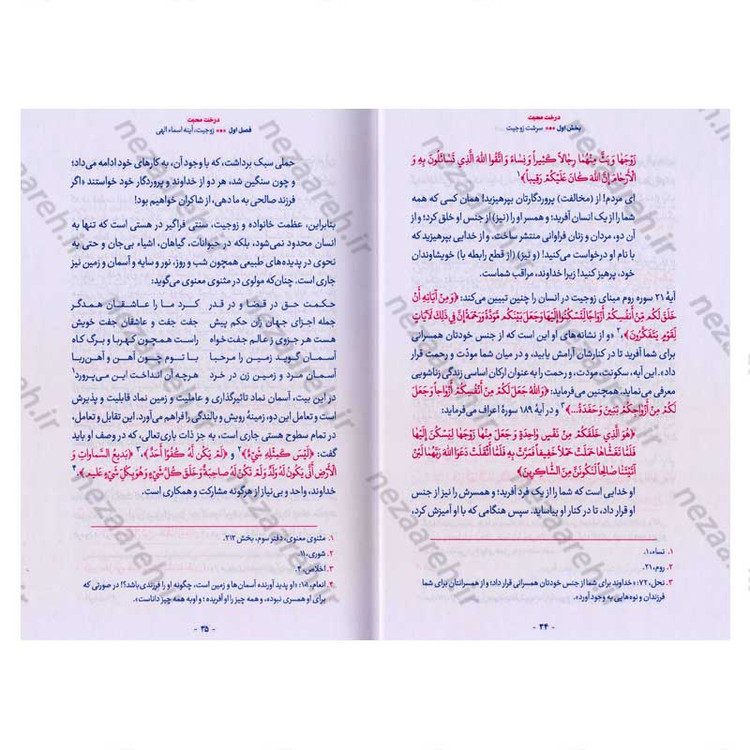 درخت محبت
بخش اول ●●● سرشت زوجیت
زَوْجَهَا وَ بَثَّ مِنْهُمَا رِجَالاً كَثِيراً وَ نِسَاءً وَ اتَّقُوا اللهَ الَّذِي تَسَائَلُونَ بِهِ وَ
الْأَرْحَامَ إِنَّ اللهَ كَانَ عَلَيْكُمْ رَقِيباً﴾۱
ای مردم! از (مخالفت) پروردگارتان بپرهیزید! همان کسی که همه
شما را از یک انسان آفرید؛ و همسر او را (نیز) از جنس او خلق کرد؛ و از
آن دو، مردان و زنان فراوانی منتشر ساخت. و از خدایی بپرهیزید که
با نام او درخواست می‌کنید! (و نیز) (از قطع رابطه با) خویشاوندان
خود، پرهیز کنید! زیرا خداوند، مراقب شماست.
آیهٔ ۲۱ سوره روم مبنای زوجیت در انسان را چنین تبیین می‌کند: ﴿وَ مِنْ آيَاتِهِ أَنْ
خَلَقَ لَكُمْ مِنْ أَنْفُسِكُمْ أَزْوَاجاً لِتَسْكُنُوا إِلَيْهَا وَ جَعَلَ بَيْنَكُمْ مَوَدَّةً وَ رَحْمَةً إِنَّ فِي ذٰلِكَ لَآيَاتٍ
لِقَوْمٍ يَتَفَكَّرُونَ﴾،۲ «و از نشانه‌های او این است که از جنس خودتان همسرانی
برای شما آفرید تا در کنارشان آرامش یابید، و در میان شما مودّت و رحمت قرار
داد». این آیه، سکونت، مودت، و رحمت را به عنوان ارکان اساسی زندگی زناشویی
معرفی می‌نماید. همچنین می‌فرماید: ﴿وَاللهُ جَعَلَ لَكُمْ مِنْ أَنْفُسِكُمْ أَزْوَاجاً وَ جَعَلَ
لَكُمْ مِنْ أَزْوَاجِكُمْ بَنِينَ وَ حَفَدَةً...﴾۳ و در آیهٔ ۱۸۹ سورهٔ اعراف می‌فرماید:
﴿هُوَ الَّذِي خَلَقَكُمْ مِنْ نَفْسٍ وَاحِدَةٍ وَ جَعَلَ مِنْهَا زَوْجَهَا لِيَسْكُنَ إِلَيْهَا
فَلَمَّا تَغَشَّاهَا حَمَلَتْ حَمْلاً خَفِيفاً فَمَرَّتْ بِهِ فَلَمَّا أَثْقَلَتْ دَعَوَا اللهَ رَبَّهُمَا لَئِنْ
آتَيْتَنَا صَالِحاً لَنَكُونَنَّ مِنَ الشَّاكِرِينَ﴾
او خدایی است که شما را از یک فرد آفرید؛ و همسرش را نیز از جنس
او قرار داد، تا در کنار او بیاساید. سپس هنگامی که با او آمیزش کرد،
۱. نساء، ۱.
۲. روم، ۲۱.
۳. نحل، ۷۲: «خداوند برای شما از جنس خودتان همسرانی قرار داد؛ و از همسرانتان برای شما
فرزندان و نوه‌هایی به وجود آورد».
- ۳۴ -
درخت محبت
فصل اول ●●● زوجیت، آینه اسماء الهی
حملی سبک برداشت، که با وجود آن، به کارهای خود ادامه می‌داد؛
و چون سنگین شد، هر دو از خداوند و پروردگار خود خواستند «اگر
فرزند صالحی به ما دهی، از شاکران خواهیم بود!
بنابراین، عظمت خانواده و زوجیت، سنتی فراگیر در هستی است که تنها به
انسان محدود نمی‌شود، بلکه در حیوانات، گیاهان، اشیاء بی‌جان و حتی به
نحوی در پدیده‌های طبیعی همچون شب و روز، نور و سایه و آسمان و زمین نیز
جاری است. چنان‌که مولوی در مثنوی معنوی می‌گوید:
حکمت حق در قضا و در قدر کرد ما را عاشقان همدگر
جمله اجزای جهان زان حکم پیش جفت جفت و عاشقان جفت خویش
هست هر جزوی ز عالم جفت‌خواه راست همچون کهربا و برگ کاه
آسمان گوید زمین را مرحبا با توم چون آهن و آهن‌ربا
آسمان مرد و زمین زن در خرد هرچه آن انداخت این می‌پرورد۱
در این بیت، آسمان نماد تاثیرگذاری و عاملیت و زمین نماد قابلیت و پذیرش
است و تعامل این دو، زمینهٔ رویش و بالندگی را فراهم می‌آورد. این تقابل و تعامل،
در تمام سطوح هستی جاری است، به جز ذات باری‌تعالی، که در وصف او باید
گفت: ﴿لَيْسَ كَمِثْلِهِ شَيْءٌ﴾۲ و ﴿لَمْ يَكُنْ لَهُ كُفُوًا أَحَدٌ﴾،۳ ﴿بَدِيعُ السَّمَاوَاتِ وَ
الْأَرْضِ أَنَّى يَكُونُ لَهُ وَلَدٌ وَ لَمْ تَكُنْ لَهُ صَاحِبَةٌ وَ خَلَقَ كُلَّ شَيْءٍ وَ هُوَ بِكُلِّ شَيْءٍ عَلِيمٌ﴾.۴
خداوند، واحد و بی نیاز از هرگونه مشارکت و همکاری است.
۱. مثنوی معنوی، دفتر سوم، بخش ۲۱۲.
۲. شوری، ۱۱.
۳. اخلاص، ۴.
۴. انعام، ۱۰۱: «او پدید آورنده آسمان‌ها و زمین است، چگونه او را فرزندی باشد؟! در صورتی که
برای او همسری نبوده، و همه چیز را او آفریده؛ و او به همه چیز داناست».
- ۳۵ -
nezaareh.ir